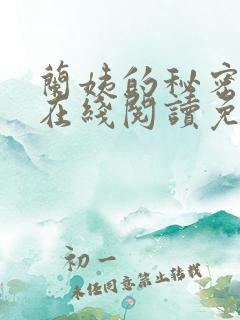 蘭姨的秘密
在綫閱讀免
初一
未经同意禁止转载